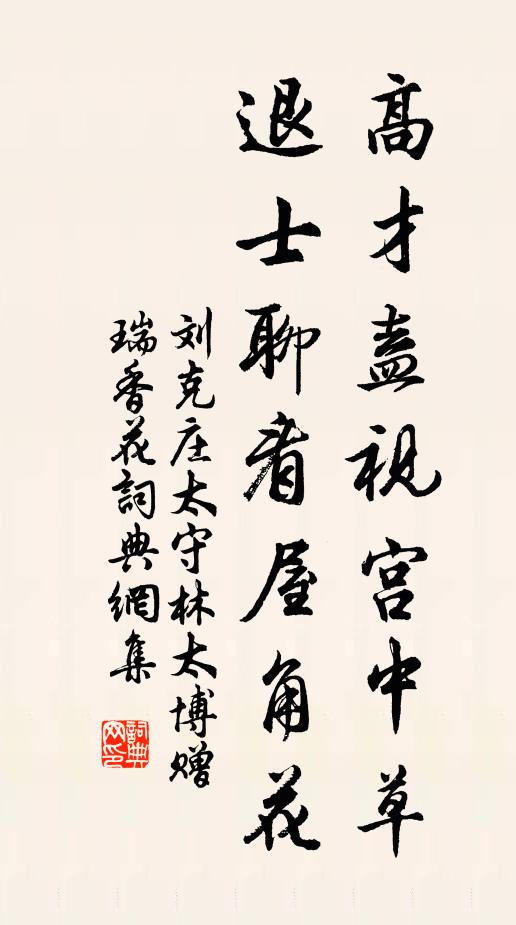 高才盍視宫中草
退士聊看屋角花
刘克庄太守林太博赠
瑞香花詞典網集
詞典網印